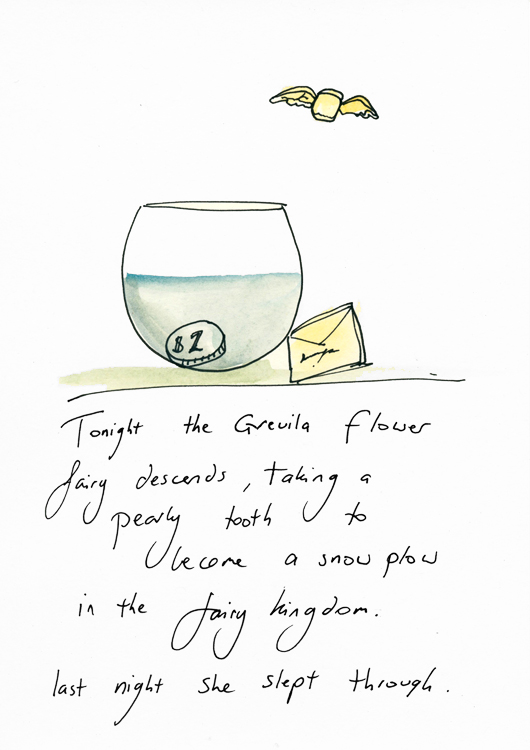 $2
Tonight the Grevila flower
fairy descends, taking a
pearly tooth to
become a snow plow
in the fairy kingdom.
last night she slept through.